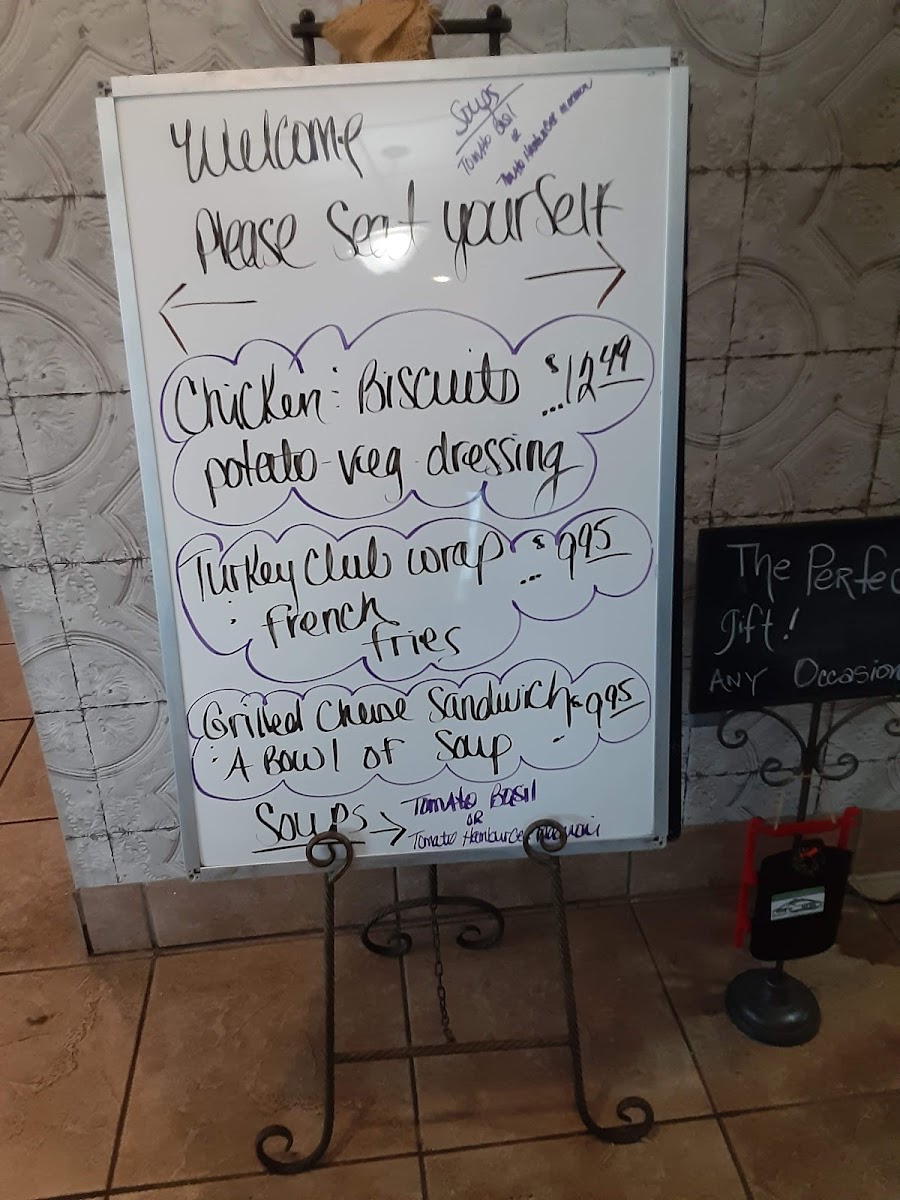 Welcome
Soups
Tomato Basil
or
Tomato Hamburger macaroni
Please Seat yourself
Chicken : Biscuits $12.49
potato - veg - dressing
Turkey Club wrap $9.95
: french
fries
Grilled Cheese Sandwich $9.95
: A Bowl of Soup
Soups → Tomato Basil
OR
Tomato Hamburger macaroni
The Perfec
gift!
ANY Occasion